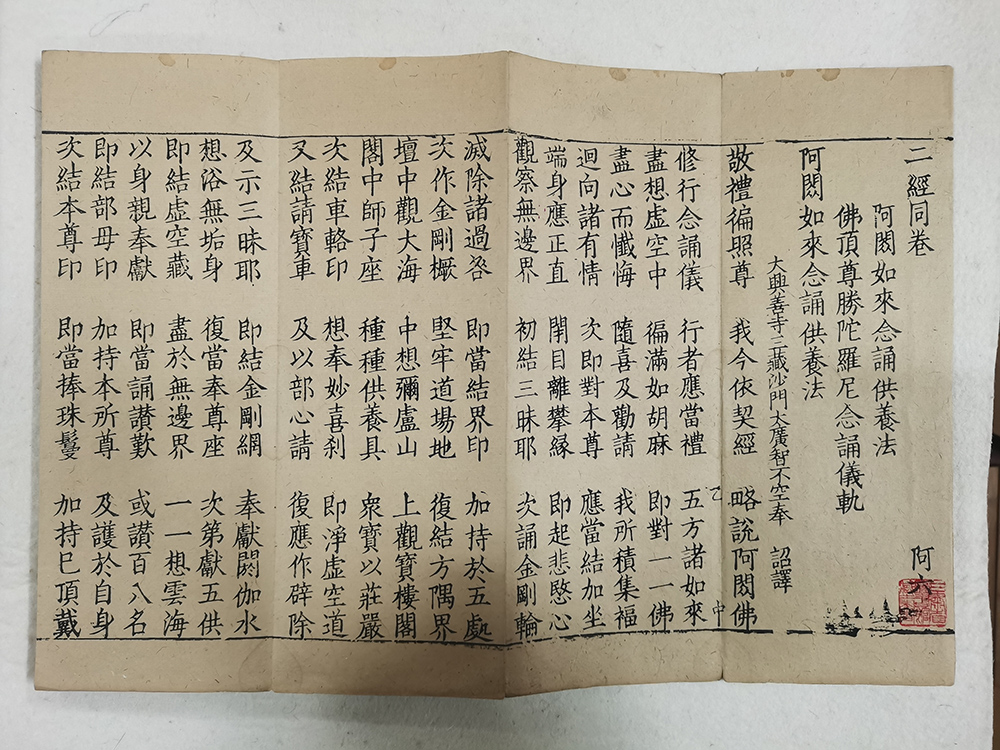 二經同卷 阿六
阿閦如來念誦供養法
佛頂尊勝陀羅尼念誦儀軌
阿閦如來念誦供養法
大興善寺三藏沙門大廣智不空奉 詔譯
敬禮徧照尊 我今依契經 略說阿閦佛
修行念誦儀 行者應當禮 五方諸如來
盡想虛空中 徧滿如胡麻 即對一一佛
盡心而懺悔 隨喜及勸請 我所積集福
迴向諸有情 次即對本尊 應當結加坐
端身應正直 閉目離攀緣 即起悲愍心
觀察無邊界 初結三昧耶 次誦金剛輪
滅除諸過咎 即當結界印 加持於五處
次作金剛橛 堅牢道場地 復結方隅界
壇中觀大海 中想彌盧山 上觀寶樓閣
閣中師子座 種種供養具 衆寶以莊嚴
次結車輅印 想奉妙喜刹 即淨虛空道
又結請寶車 及以部心請 復應作辟除
及示三昧耶 即結金剛網 奉獻閼伽水
想浴無垢身 復當奉尊座 次第獻五供
即結虛空藏 盡於無邊界 一一想雲海
以身親奉獻 即當誦讚歎 或讃百八名
即結部母印 加持本所尊 及護於自身
次結本尊印 即當捧珠鬘 加持巳頂戴
乙
中